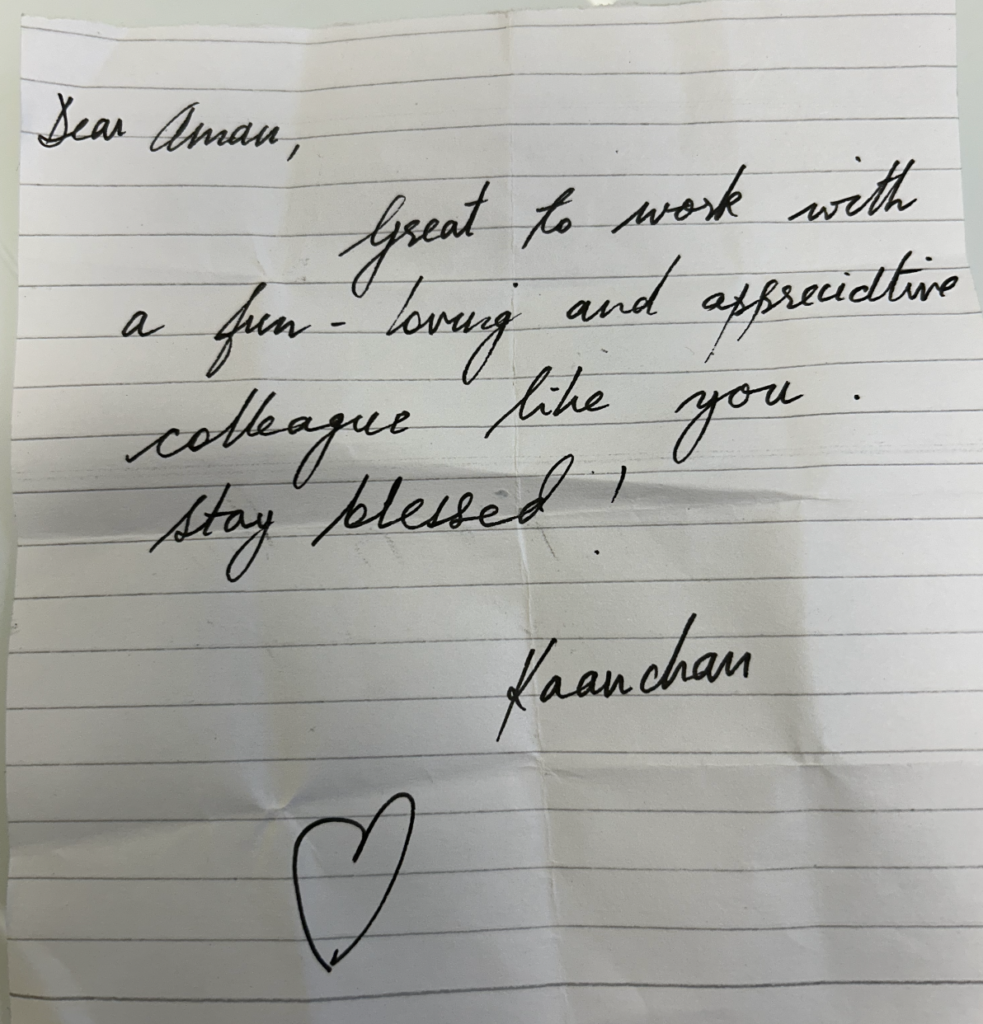 Dear Aman,
Great to work with
a fun-loving and appreciative
colleague like you.
stay blessed!
Kaanchan